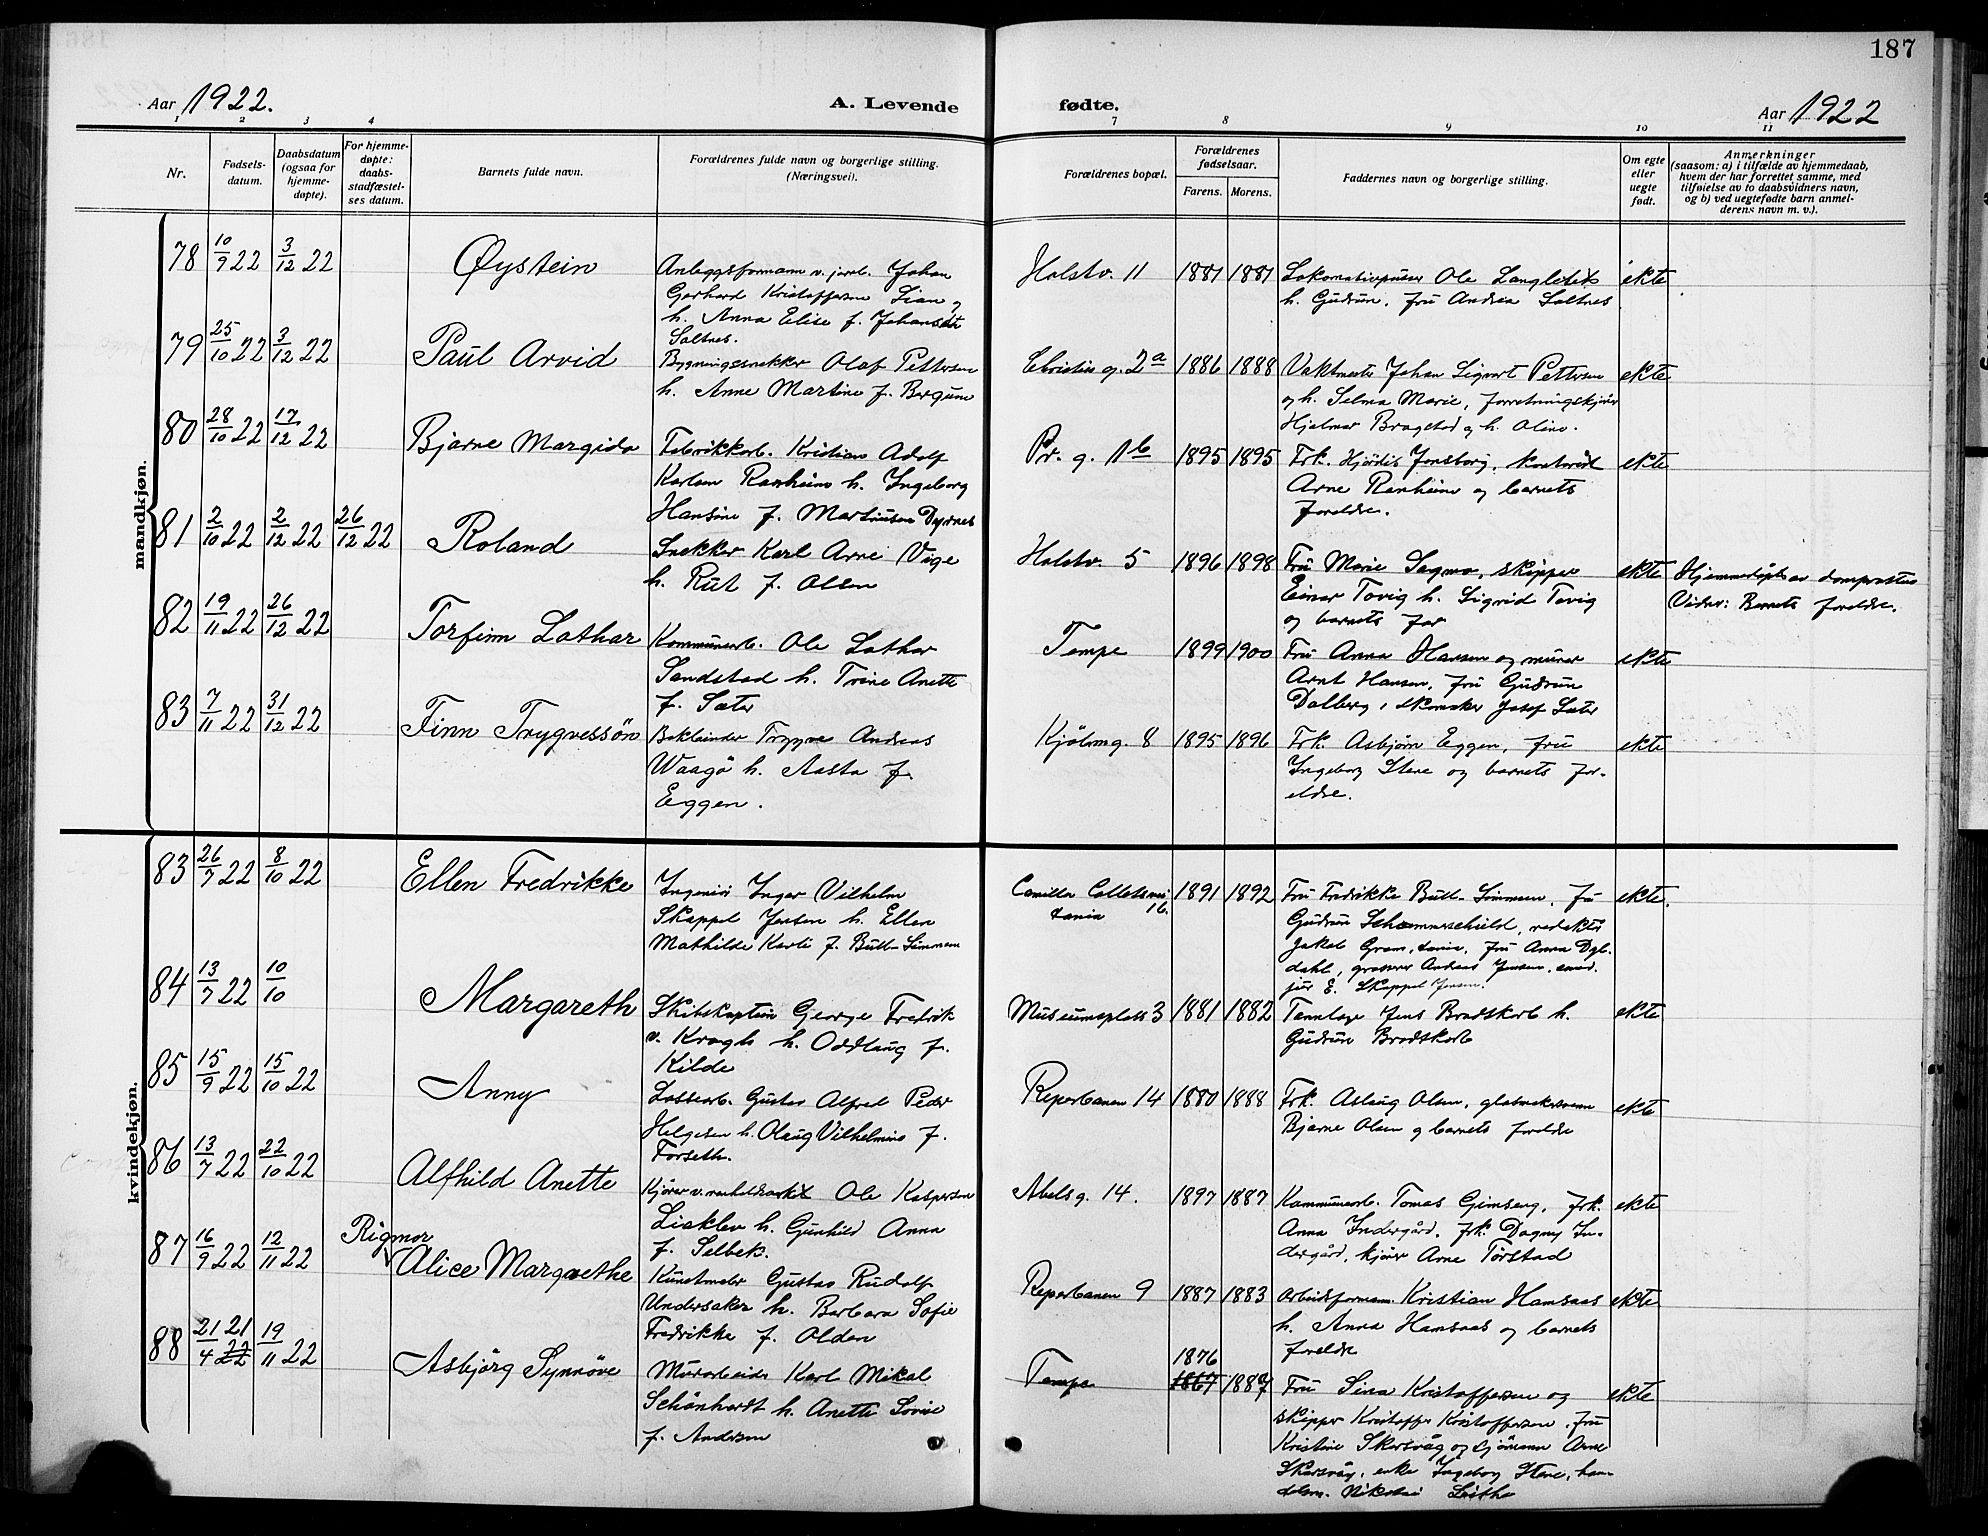 187
Aar 1922. A. Levende fødte. Aar 1922
1 2 3 4 7 8 9 10 11
Nr.
Fødsels-
datum.
Daabsdatum
(ogsaa for
hjemme-
døpte).
For hjemme-
døpte:
daabs-
stadfæstel-
ses datum.
Barnets fulde navn.
Forældrenes fulde navn og borgerlige stilling.
(Næringsvei).
Forældrenes bopæl.
Forældrenes
fødselsaar.
Farens. Morens.
Faddernes navn og borgerlige stilling.
Om egte
eller
uegte
født.
Anmerkninger
(saasom: a) i tilfælde av hjemmedaab,
hvem der har forrettet samme, med
tilføielse av to daabsvidners navn,
og b) ved uegtefødte barn anmel-
derens navn m. v.).
mandkjøn.
78 10/9 22 3/12 22 Øystein
Anleggsformann v. jernb. Johan
Gerhard Kristoffersen Lian og
h. Anna Elise f. Johansdt
Saltnes.
Holstv. 11 1881 1881
Lokomotivpusser Ole Langlete
h. Gudrun, fru Andrea Saltnes
ekte
79 25/10 22 3/12 22 Paul Arvid
Bygningssnekker Olaf Pettersen
h. Anne Martine f. Bergum
Christies g. 2a 1886 1888
Vaktmester Johan Sigvart Pettersen
og h. Selma Marie, forretningskjører
Hjalmar Bragstad og h. Aline.
ekte
80 28/10 22 17/12 22 Bjarne Margido
Fabrikkarb. Kristian Adolf
Karlsen Ranheim h. Ingeborg
Hansine f. Martinsen Dyrnes
Pr. g. 11b 1895 1895
Frk. Hjördis Jonsborg,
Arne Ranheim og barnets
foreldre.
ekte
81 2/10 22 2/12 22 26/12 22 Roland
Snekker Karl Arne Vige
h. Rut f. Olsen
Holstv. 5 1896 1898
Fru Marie Sagmo, skipper
Einar Tovig h. Sigrid Tovig
og barnets far
ekte
Hjemmedøpt av domprosten
Vidner: Barnets foreldre.
82 19/11 22 26/12 22 Torfinn Lothar
Kommunearb. Ole Lothar
Sandstad h. Trine Anette
f. Sæter
Tempe 1899 1900
Fru Anna Hansen og murer
Arnt Hansen, fru Gudrun
Dalberg, skomaker Josef Sæter
ekte
83 7/11 22 31/12 22 Finn Trygvessön
Bokbinder Trygve Andreas
Waagö h. Aasta f.
Eggen.
Kjölmg. 8 1895 1896
Frk. Asbjørn Eggen, fru
Ingeborg Stene og barnets for-
eldre.
ekte
kvindekjøn.
83 26/7 22 8/10 22 Ellen Fredrikke
Ingeniör Inger Vilhelm
Skappel Jensen h. Ellen
Mathilde Karti f. Bull-Simmsen
Camilla Colletsvei 16.
1891 1892
Fru Fredrikke Bull-Simmsen, fru
Gudrun Schammerschield, redaktör
Jakob Gram, fru Anna Dybdahl,
grosserer Andreas Jensen,
E. Skappel Jensen.
ekte.
84 13/7 22 10/10 Margareth
Skibskaptein George Fredrik
v. Krogh h. Oddlaug f.
Kilde
Museumsplass 3 1881 1882
Tannlæge Jens Bradskorb h.
Gudrun Bradskorb
ekte
85 15/9 22 15/10 22 Anny
Lossearb. Gustav Alfred Peder
Helgesen h. Olaug Vilhelmine f.
Forseth.
Reperbanen 14 1880 1888
Frk. Aslaug Olsen, glassmestersvenn
Bjarne Olsen og barnets foreldre
ekte
86 13/7 22 22/10 22 Alfhild Anette
Kjører v. renholdsverket Ole Kaspersen
Liaklev h. Gunhild Anna
f. Selbek.
Abelsg. 14. 1897 1887
Kommunearb. Tomas Gjimseng, frk.
Anna Indergård, frk. Dagny In-
dergård, kjører Arne Törstad
ekte
87 16/9 22 12/11 22 Rigmor
Alice Margrethe
Kunstmaler Gustav Rudolf
Undersaker h. Barbara Sofie
Fredrikke f. Olden
Reperbanen 9 1887 1883
Arbeidsformann Kristian Hamsaas
h. Anna Hamsaas og barnets
foreldre
ekte
88 21/4 21 22 19/11 22 Asbjörg Synnöve
Murarbeider Karl Mikal
Schönhardt h. Anette Lovise
f. Andersen
Tempe 1876 1867 1887
Fru Sina Kristoffersen og
skipper Kristoffer Kristoffersen, fru
Kristine Skersvåg og sjömann Arne
Skersvåg, enke Ingeborg Stene, han-
delsm. Nikolai
ekte